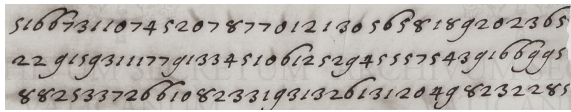 5166731107452078770121305658189202365
22915931117791334510612529455575439166995
8825337266108233193132613120498232285